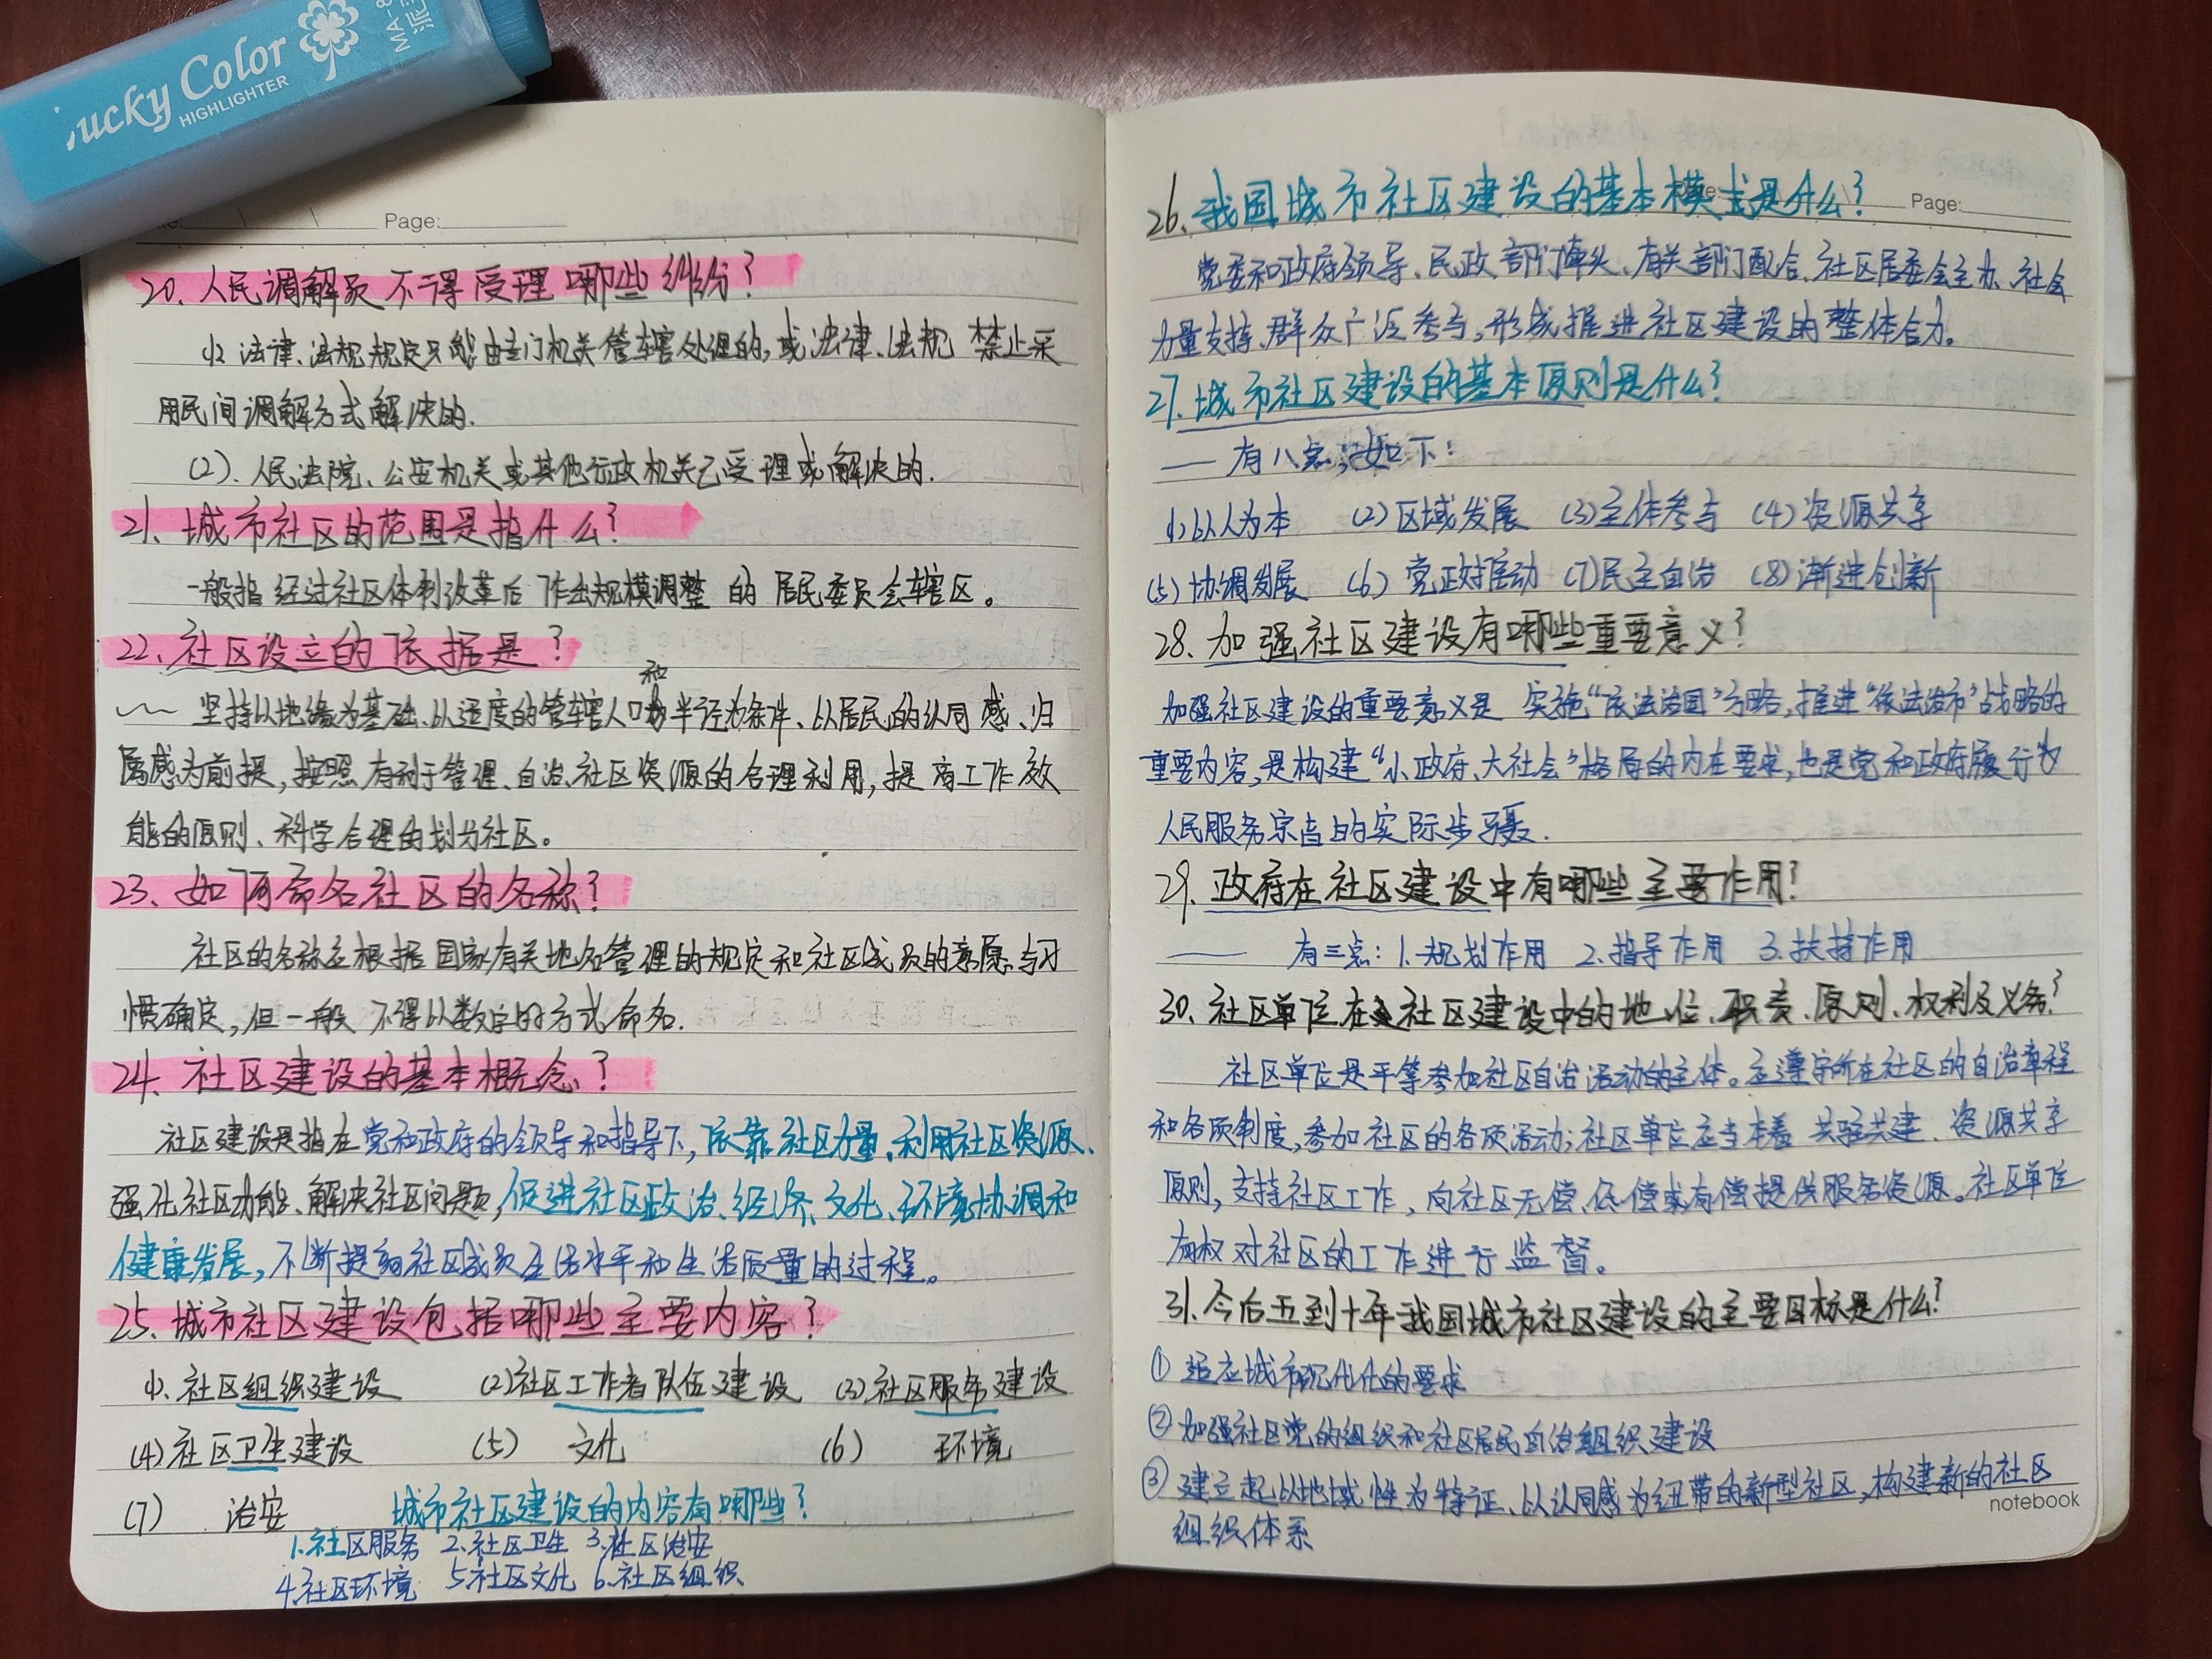 Lucky Color
HIGHLIGHTER
MA-8
派
Page:
20. 人民调解员不得受理哪些纠纷？
(1) 法律、法规规定只能由专门机关管辖处理的，或法律、法规 禁止采
用民间调解方式解决的.
(2). 人民法院、公安机关或其他行政机关已受理或解决的.
21. 城市社区的范围是指什么？
一般指 经过社区体制改革后 作出规模调整 的 居民委员会辖区。
22. 社区设立的依据是？
和
坚持以地缘为基础、以适度的管辖人口半径为条件、以居民的认同感、归
属感为前提，按照 有利于管理、自治、社区资源的合理利用，提高工作效
能的原则、科学合理的划分社区。
23. 如何命名社区的名称？
社区的名称应根据国家有关地名管理的规定和社区成员的意愿与习
惯确定，但一般 不得以数字的方式命名.
24. 社区建设的基本概念？
社区建设是指在党和政府的领导和指导下，依靠社区力量、利用社区资源、
强化社区功能、解决社区问题，促进社区政治、经济、文化、环境协调和
健康发展，不断提高社区成员生活水平和生活质量的过程。
25. 城市社区建设包括哪些主要内容？
(1). 社区组织建设 (2)社区工作者队伍建设 (3)社区服务建设
(4)社区卫生建设 (5) 文化 (6) 环境
(7) 治安 城市社区建设的内容有哪些？
1.社区服务 2.社区卫生 3.社区治安
4.社区环境 5.社区文化 6.社区组织
Page:
26. 我国城市社区建设的基本模式是什么？
党委和政府领导、民政部门牵头、有关部门配合、社区居委会主办、社会
力量支持、群众广泛参与，形成推进社区建设的整体合力。
27. 城市社区建设的基本原则是什么？
—— 有八点；如下：
(1)以人为本 (2)区域发展 (3)主体参与 (4)资源共享
(5)协调发展 (6)党政推动 (7)民主自治 (8)渐进创新
28. 加强社区建设有哪些重要意义？
加强社区建设的重要意义是 实施“依法治国”方略，推进“依法治市”战略的
重要内容，是构建“小政府、大社会”格局的内在要求，也是党和政府履行为
人民服务宗旨的实际步骤.
29. 政府在社区建设中有哪些主要作用？
—— 有三点：1.规划作用 2.指导作用 3.扶持作用
30. 社区单位在社区建设中的地位、职责、原则、权利及义务？
社区单位是平等参加社区自治活动的主体。应遵守所在社区的自治章程
和各项制度，参加社区的各项活动；社区单位应当本着 共驻共建、资源共享
原则，支持社区工作，向社区无偿、低偿或有偿提供服务资源。社区单位
有权对社区的工作进行监督。
31. 今后五到十年我国城市社区建设的主要目标是什么？
① 适应城市现代化的要求
② 加强社区党的组织和社区居民自治组织建设
③ 建立起以地域性为特征、以认同感为纽带的新型社区，构建新的社区
notebook
组织体系